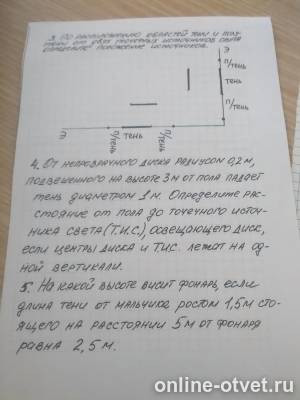 3. По расположению областей тени и полу-
тени от двух точечных источников света
определите положение источников.
Э
п/тень
тень
п/тень
Э
п/тень
тень
п/тень
4. От непрозрачного диска радиусом 0,2 м,
подвешенного на высоте 3 м от пола падает
тень диаметром 1 м. Определите рас-
стояние от пола до точечного источ-
ника света (Т.И.С), освещающего диск,
если центры диска и Т.И.С. лежат на од-
ной вертикали.
5. На какой высоте висит фонарь, если
длина тени от мальчика ростом 1,5 м сто-
ящего на расстоянии 5 м от фонаря
равна 2,5 м.
online-otvet.ru